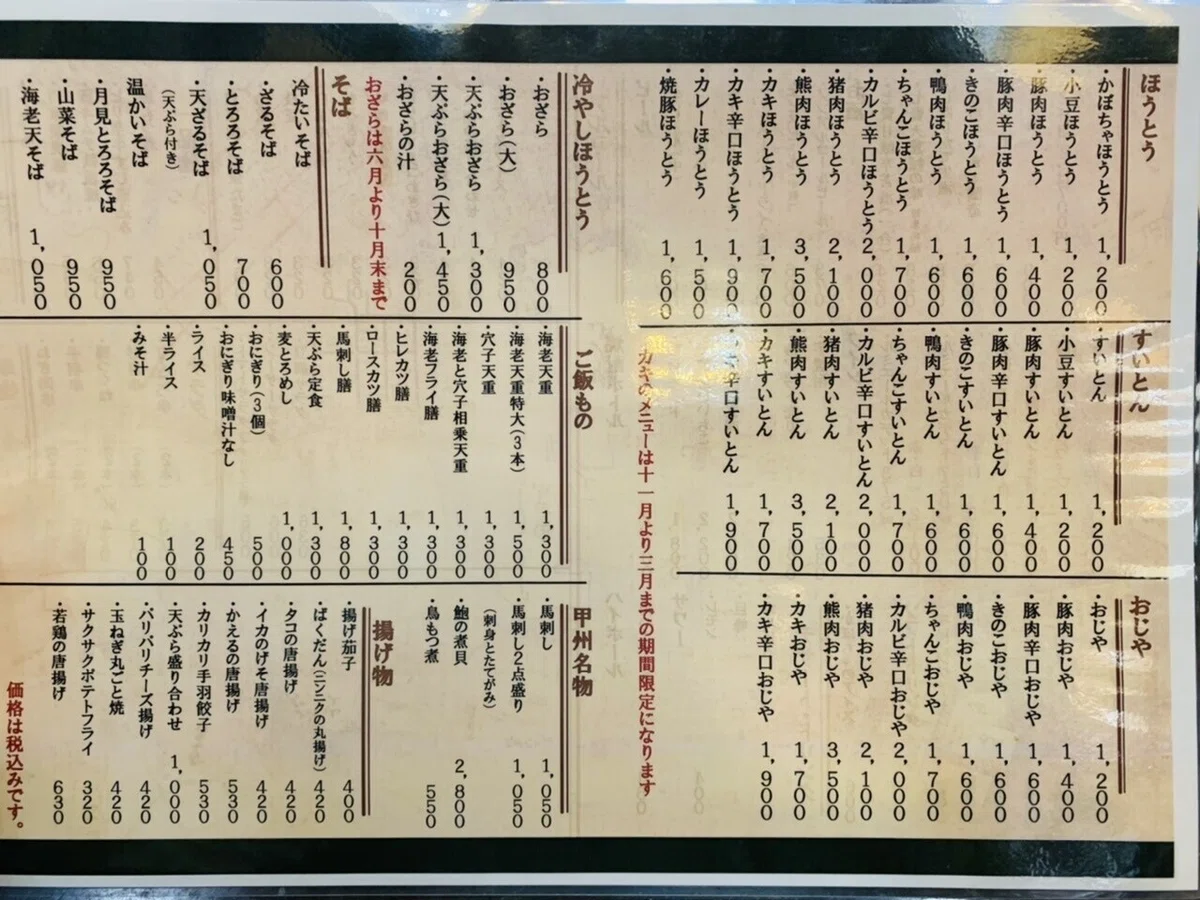 ほうとう
・かぼちゃほうとう 1,200
・小豆ほうとう 1,200
・豚肉ほうとう 1,400
・豚肉辛口ほうとう 1,600
・きのこほうとう 1,600
・鴨肉ほうとう 1,600
・ちゃんこほうとう 1,700
・カルビ辛口ほうとう 2,000
・猪肉ほうとう 2,100
・熊肉ほうとう 3,500
・カキほうとう 1,700
・カキ辛口ほうとう 1,900
・カレーほうとう 1,500
・焼豚ほうとう 1,600
すいとん
・すいとん 1,200
・小豆すいとん 1,200
・豚肉すいとん 1,400
・豚肉辛口すいとん 1,600
・きのこすいとん 1,600
・鴨肉すいとん 1,600
・ちゃんこすいとん 1,700
・カルビ辛口すいとん 2,000
・猪肉すいとん 2,100
・熊肉すいとん 3,500
・カキすいとん 1,700
・カキ辛口すいとん 1,900
おじや
・おじや 1,200
・豚肉おじや 1,400
・豚肉辛口おじや 1,600
・きのこおじや 1,600
・鴨肉おじや 1,600
・ちゃんこおじや 1,700
・カルビ辛口おじや 2,000
・猪肉おじや 2,100
・熊肉おじや 3,500
・カキおじや 1,700
・カキ辛口おじや 1,900
カキのメニューは十一月より三月までの期間限定になります
冷やしほうとう
・おざら 800
・おざら(大) 950
・天ぷらおざら 1,300
・天ぷらおざら(大) 1,450
・おざらの汁 200
おざらは六月より十月末まで
そば
冷たいそば
・ざるそば 600
・とろろそば 700
・天ざるそば 1,050
(天ぷら付き)
温かいそば
・月見とろろそば 950
・山菜そば 950
・海老天そば 1,050
ご飯もの
・海老天重 1,300
・海老天重特大(3本) 1,500
・穴子天重 1,300
・海老と穴子相乗天重 1,300
・海老フライ膳 1,300
・ヒレカツ膳 1,300
・ロースカツ膳 1,300
・馬刺し膳 1,800
・天ぷら定食 1,300
・麦とろめし 1,000
・おにぎり(3個) 500
・おにぎり味噌汁なし 450
・ライス 200
・半ライス 100
・みそ汁 100
甲州名物
・馬刺し 1,050
・馬刺し2点盛り 1,050
(刺身とたてがみ)
・鮑の煮貝 2,800
・鳥もつ煮 550
揚げ物
・揚げ茄子 400
・ばくだん(ニンニクの丸揚げ) 420
・タコの唐揚げ 420
・イカのげそ唐揚げ 420
・かえるの唐揚げ 530
・カリカリ手羽餃子 530
・天ぷら盛り合わせ 1,000
・パリパリチーズ揚げ 420
・玉ねぎ丸ごと焼 420
・サクサクポテトフライ 320
・若鶏の唐揚げ 630
価格は税込みです。